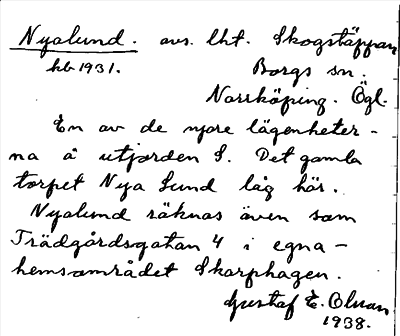 Nyalund. avs. lht. Skogstäppan
hb 1931. Borgs sn.
Norrköping. Ögl.
En av de nyare lägenheter-
na å utjorden S. Det gamla
torpet Nya Lund låg här.
Nyalund räknas även som
Trädgårdsgatan 4 i egna-
hemsområdet Skarphagen.
Gustaf E. Olsson.
1938.